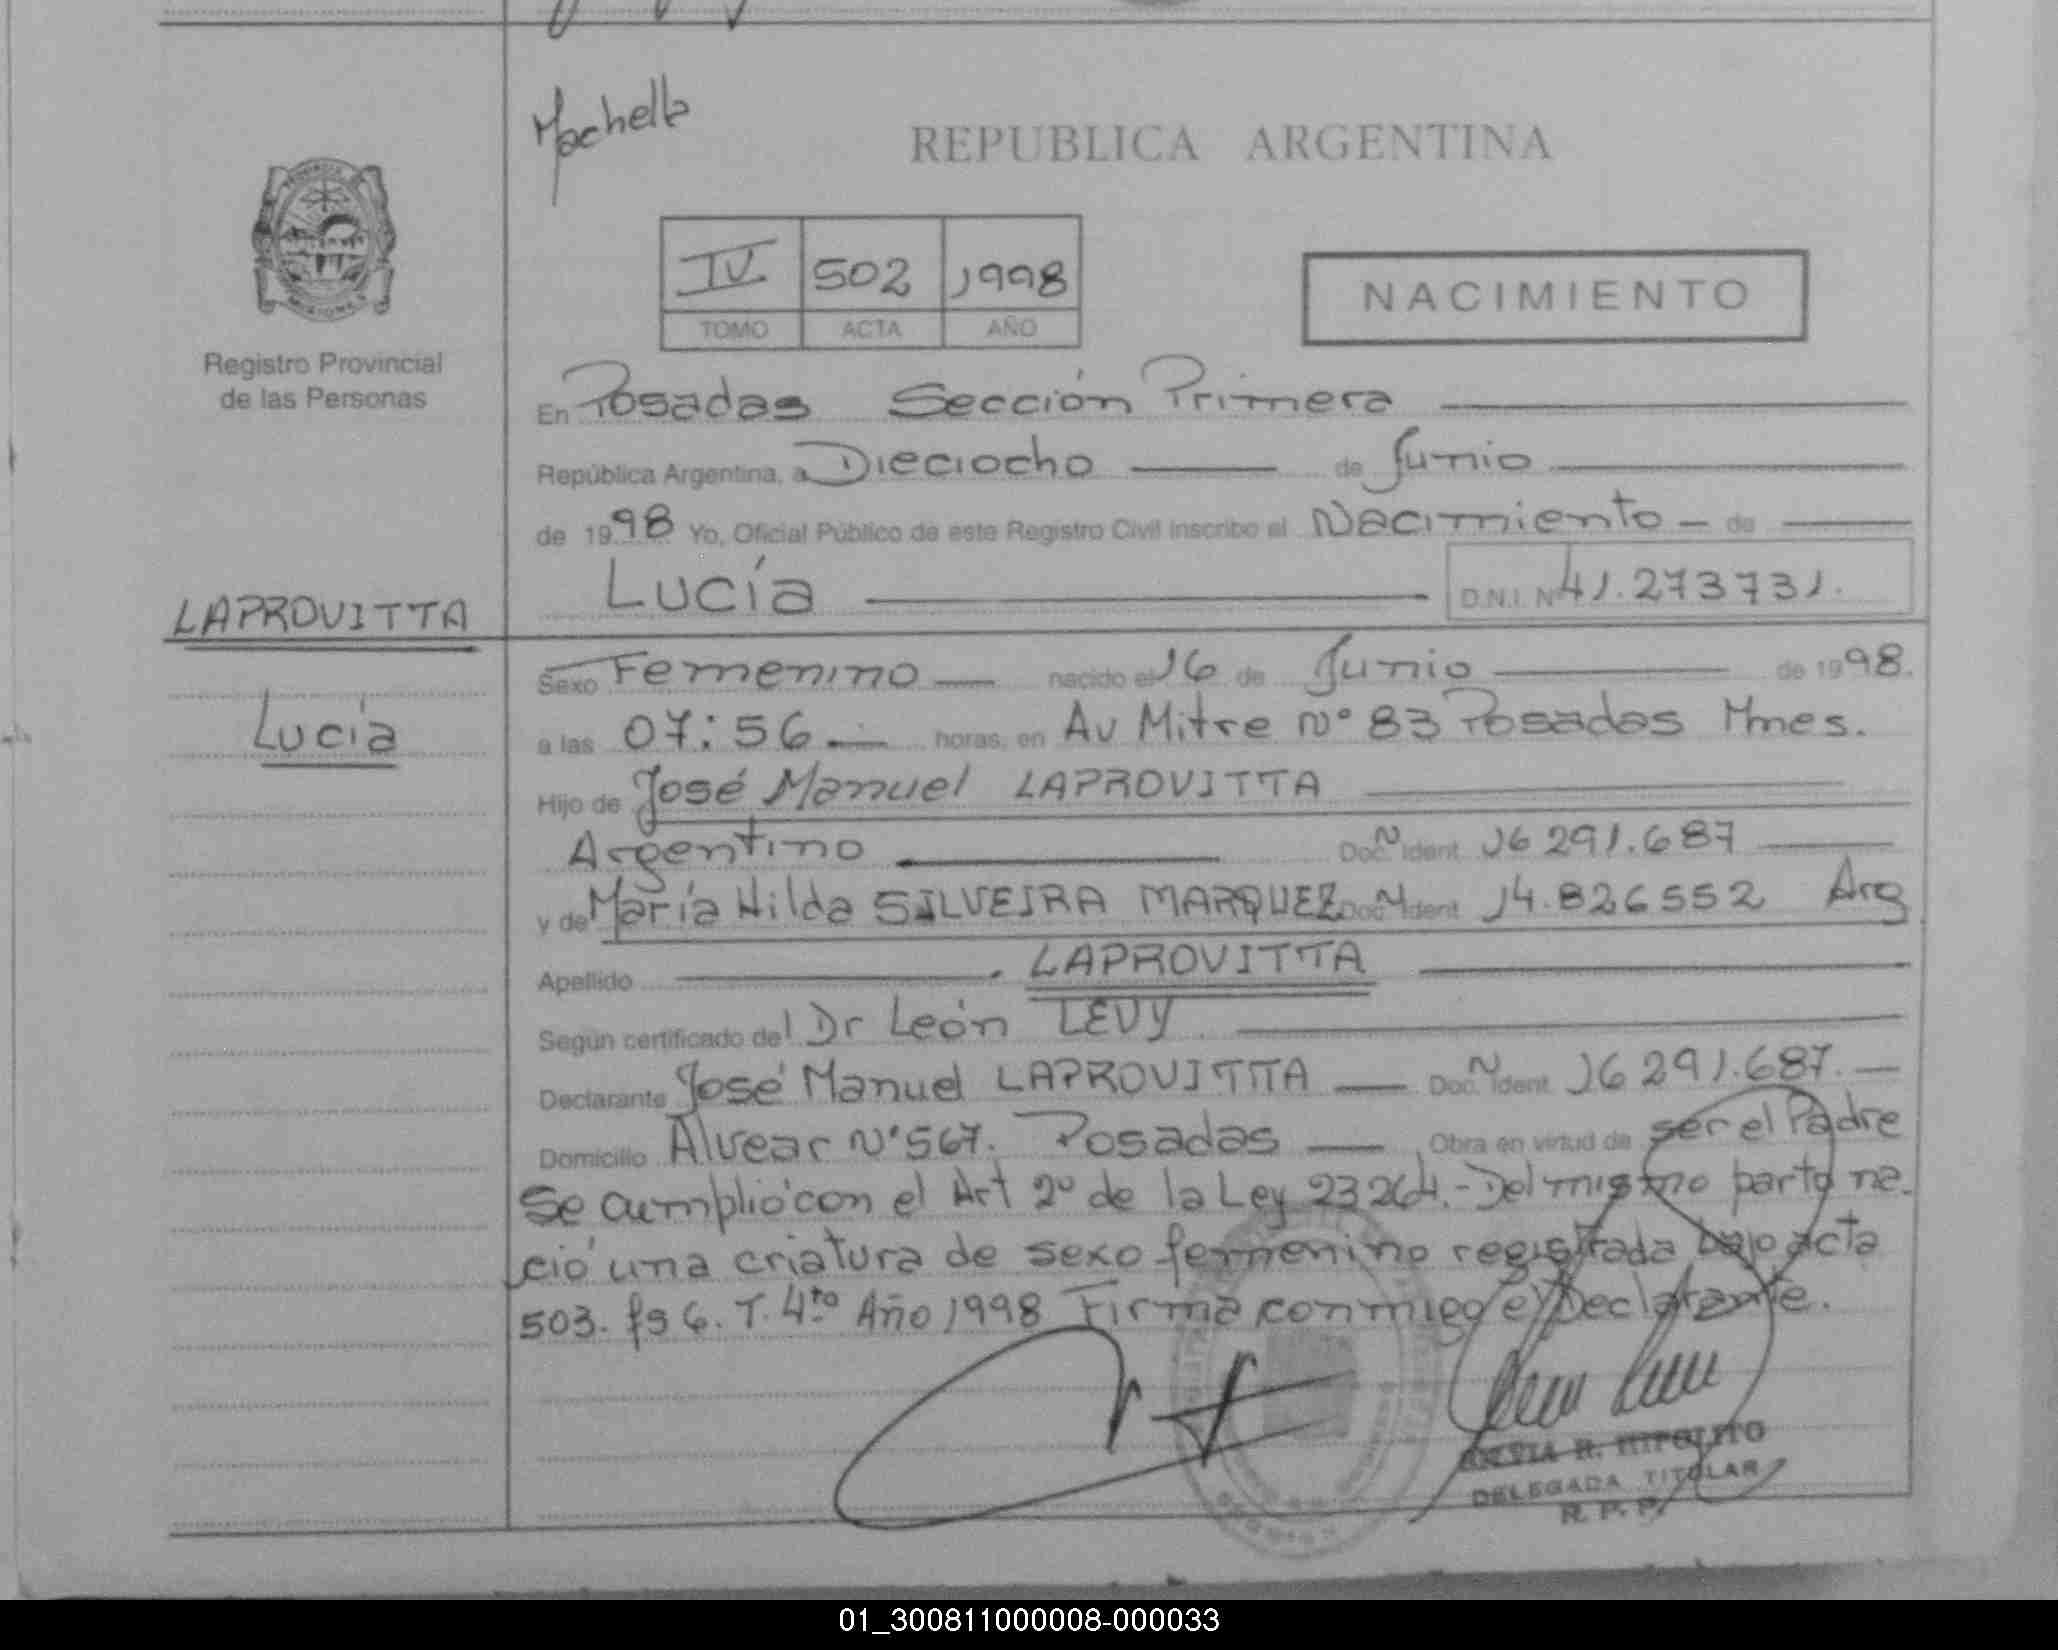 Machella
REPUBLICA ARGENTINA
IV 502 1998
TOMO ACTA AÑO
NACIMIENTO
Registro Provincial
de las Personas
En Posadas Sección Primera
República Argentina, a Dieciocho de Junio
de 1998 Yo, Oficial Público de este Registro Civil inscribo el Nacimiento de
Lucía D.N.I. Nº 41.273731.
LAPROVITTA
Lucía
Sexo Femenino nacido el 16 de Junio de 1998.
a las 07:56 horas, en Av Mitre Nº 83 Posadas Mnes.
Hijo de José Manuel LAPROVITTA
Argentino Doc. N Ident 16 291.687
y de María Hilda SILVEIRA MARQUEZ Doc. N Ident 14.826552 Arg
Apellido LAPROVITTA
Según certificado del Dr León LEVY
Declarante José Manuel LAPROVITTA Doc. N Ident 16 291.687.
Domicilio Alvear Nº 567. Posadas Obra en virtud de ser el Padre
Se cumplió con el Art 2º de la Ley 23264.- Del mismo parto na-
ció una criatura de sexo femenino registrada bajo acta
503. fs 6. T. 4to Año 1998 Firma conmigo el Declarante.
R. HIPOLITO
DELEGADA TITULAR
R. P. P.
01_300811000008-000033